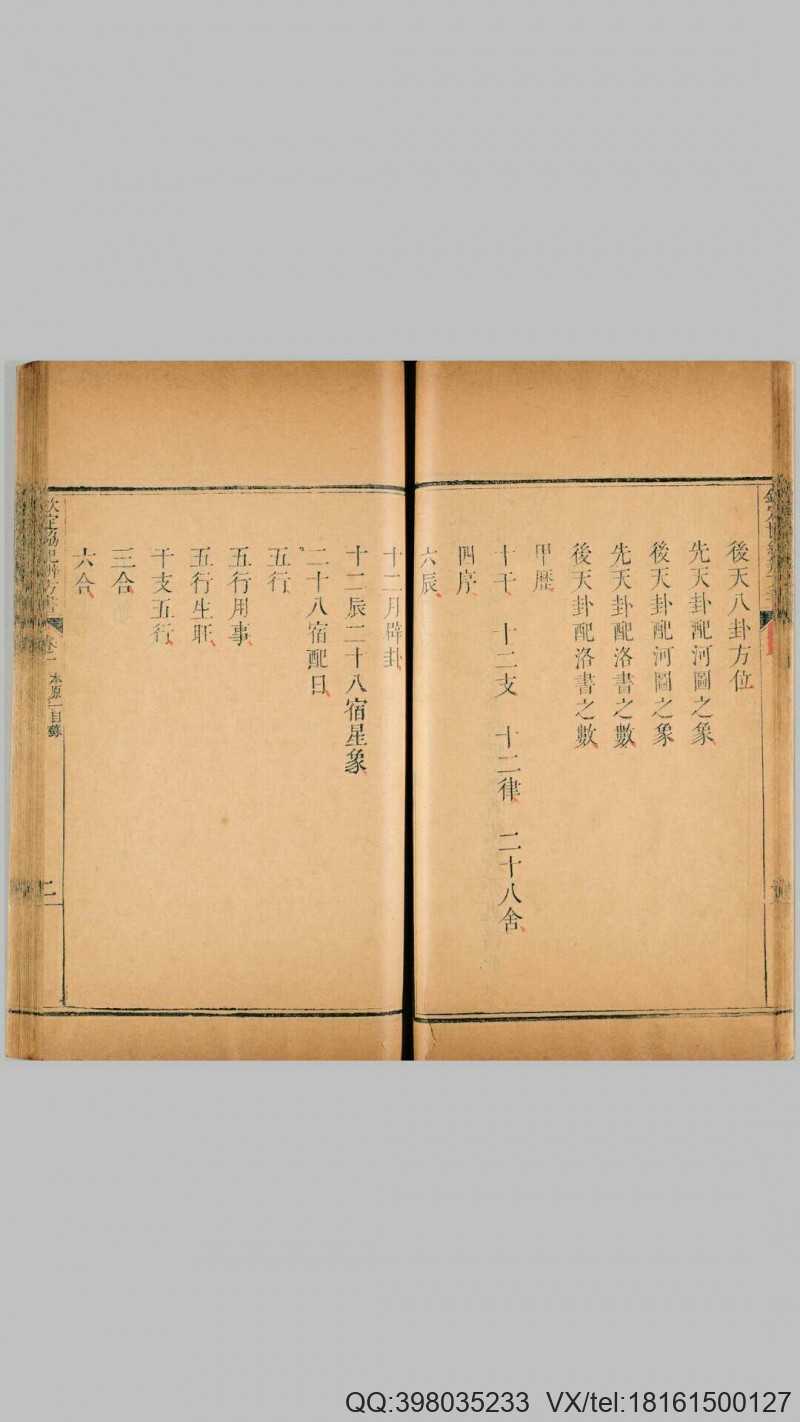 後天八卦方位
先天卦配河圖之象
後天卦配河圖之象
先天卦配洛書之數
後天卦配洛書之數
甲歷
十干　十二支　十二律　二十八舍
四序
六辰
十二月辟卦
十二辰二十八宿星象
二十八宿配日
五行
五行用事
五行生旺
干支五行
三合
六合
欽定協紀辨方書 卷一 本原一目錄 二
QQ:398035233 VX/tel:18161500127